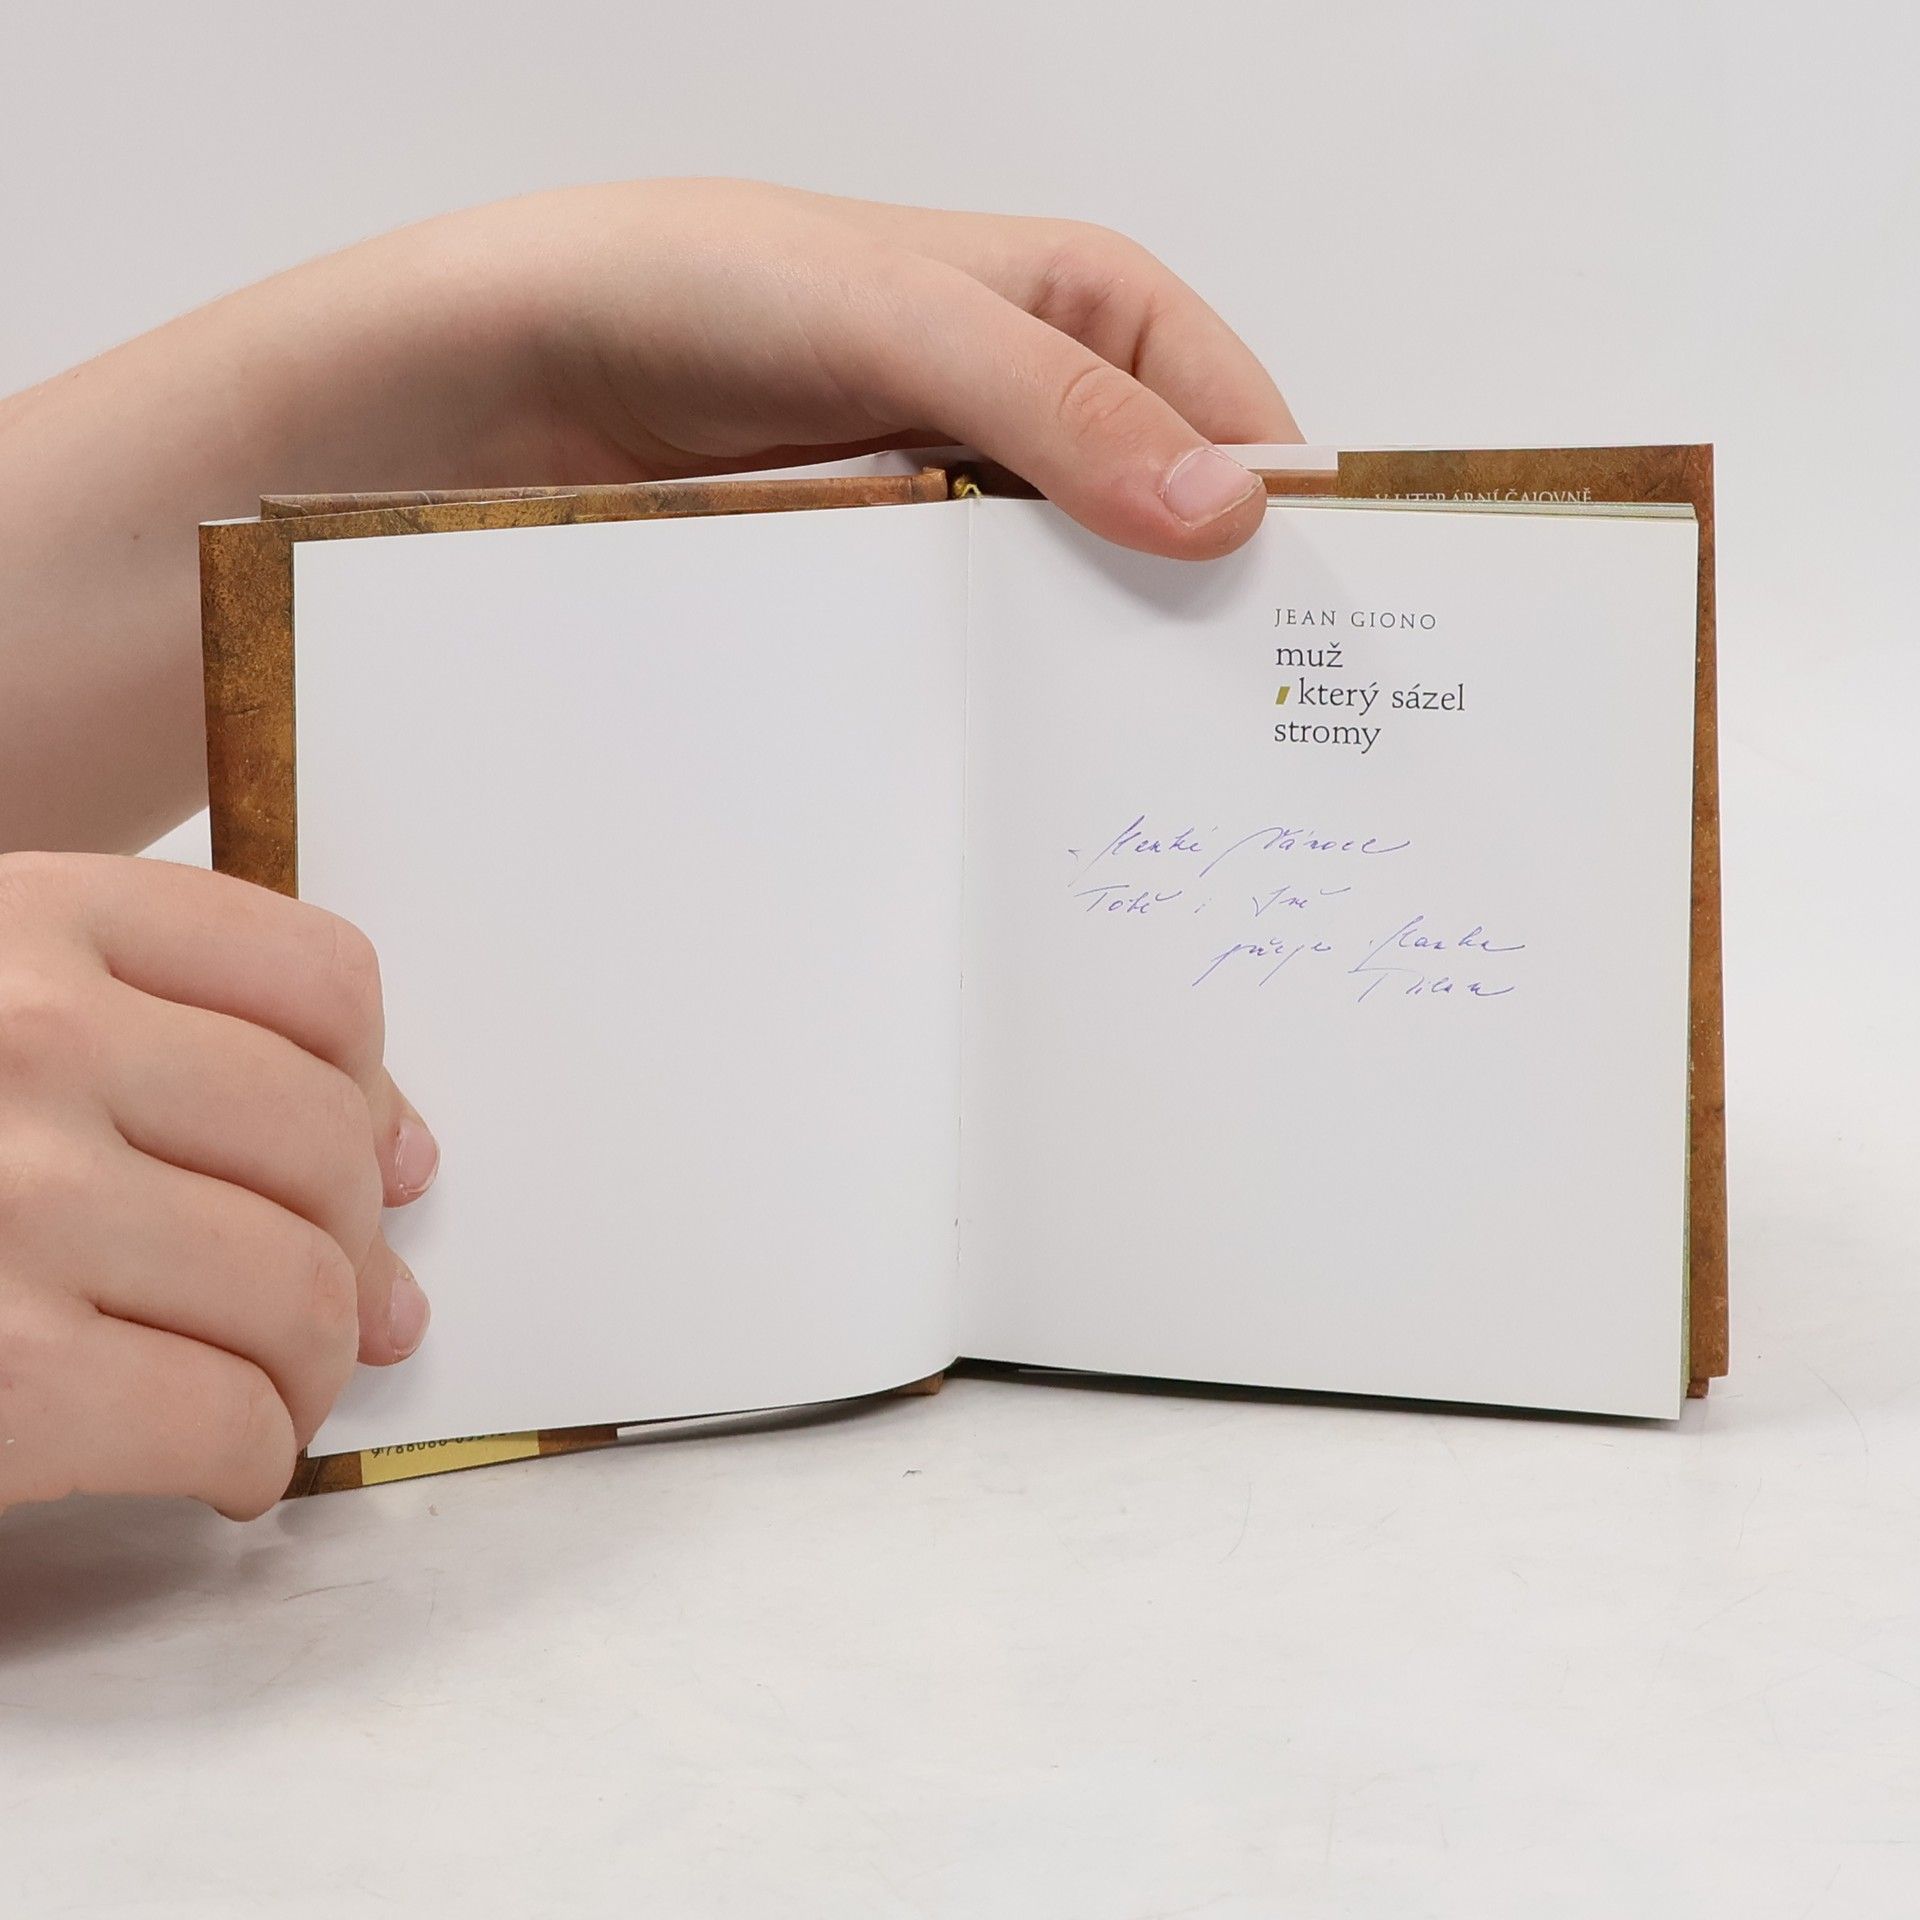 V LITERÁRNÍ ČAJOVNĚ
JEAN GIONO
muž
který sázel
stromy
Hezké Vánoce
Tobě i
přeje Hanka
Milan